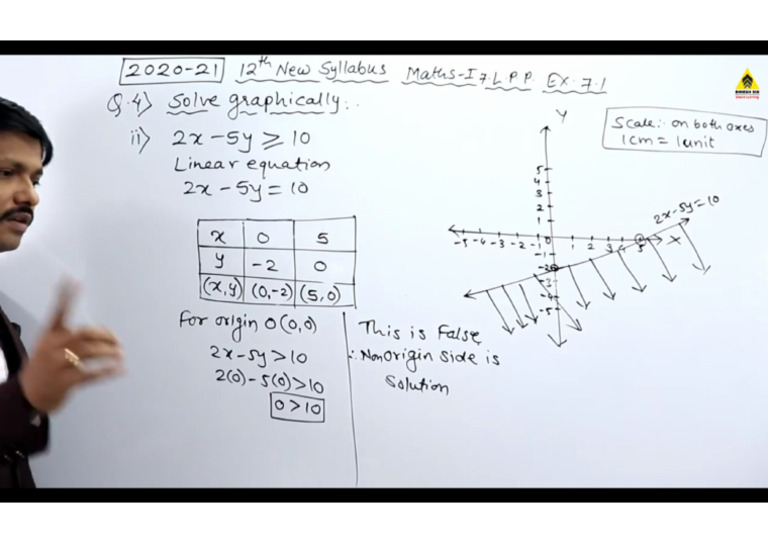 2020-21 12th New Syllabus Maths-I 7. L.P.P. EX. 7.1
Q.4) Solve graphically:.
ii) 2x-5y ≥ 10
Linear equation
2x-5y=10
x 0 5
y -2 0
(x,y) (0,-2) (5,0)
For origin O(0,0)
2x-5y>10
2(0)-5(0)>10
0>10
This is False,
∴ Non origin side is
Solution
Scale:- on both axes
1cm = 1unit
Y
5
4
3
2
1
-5 -4 -3 -2 -1 0 1 2 3 4 5 X
-1
-2
-3
-4
-5
2x-5y=10